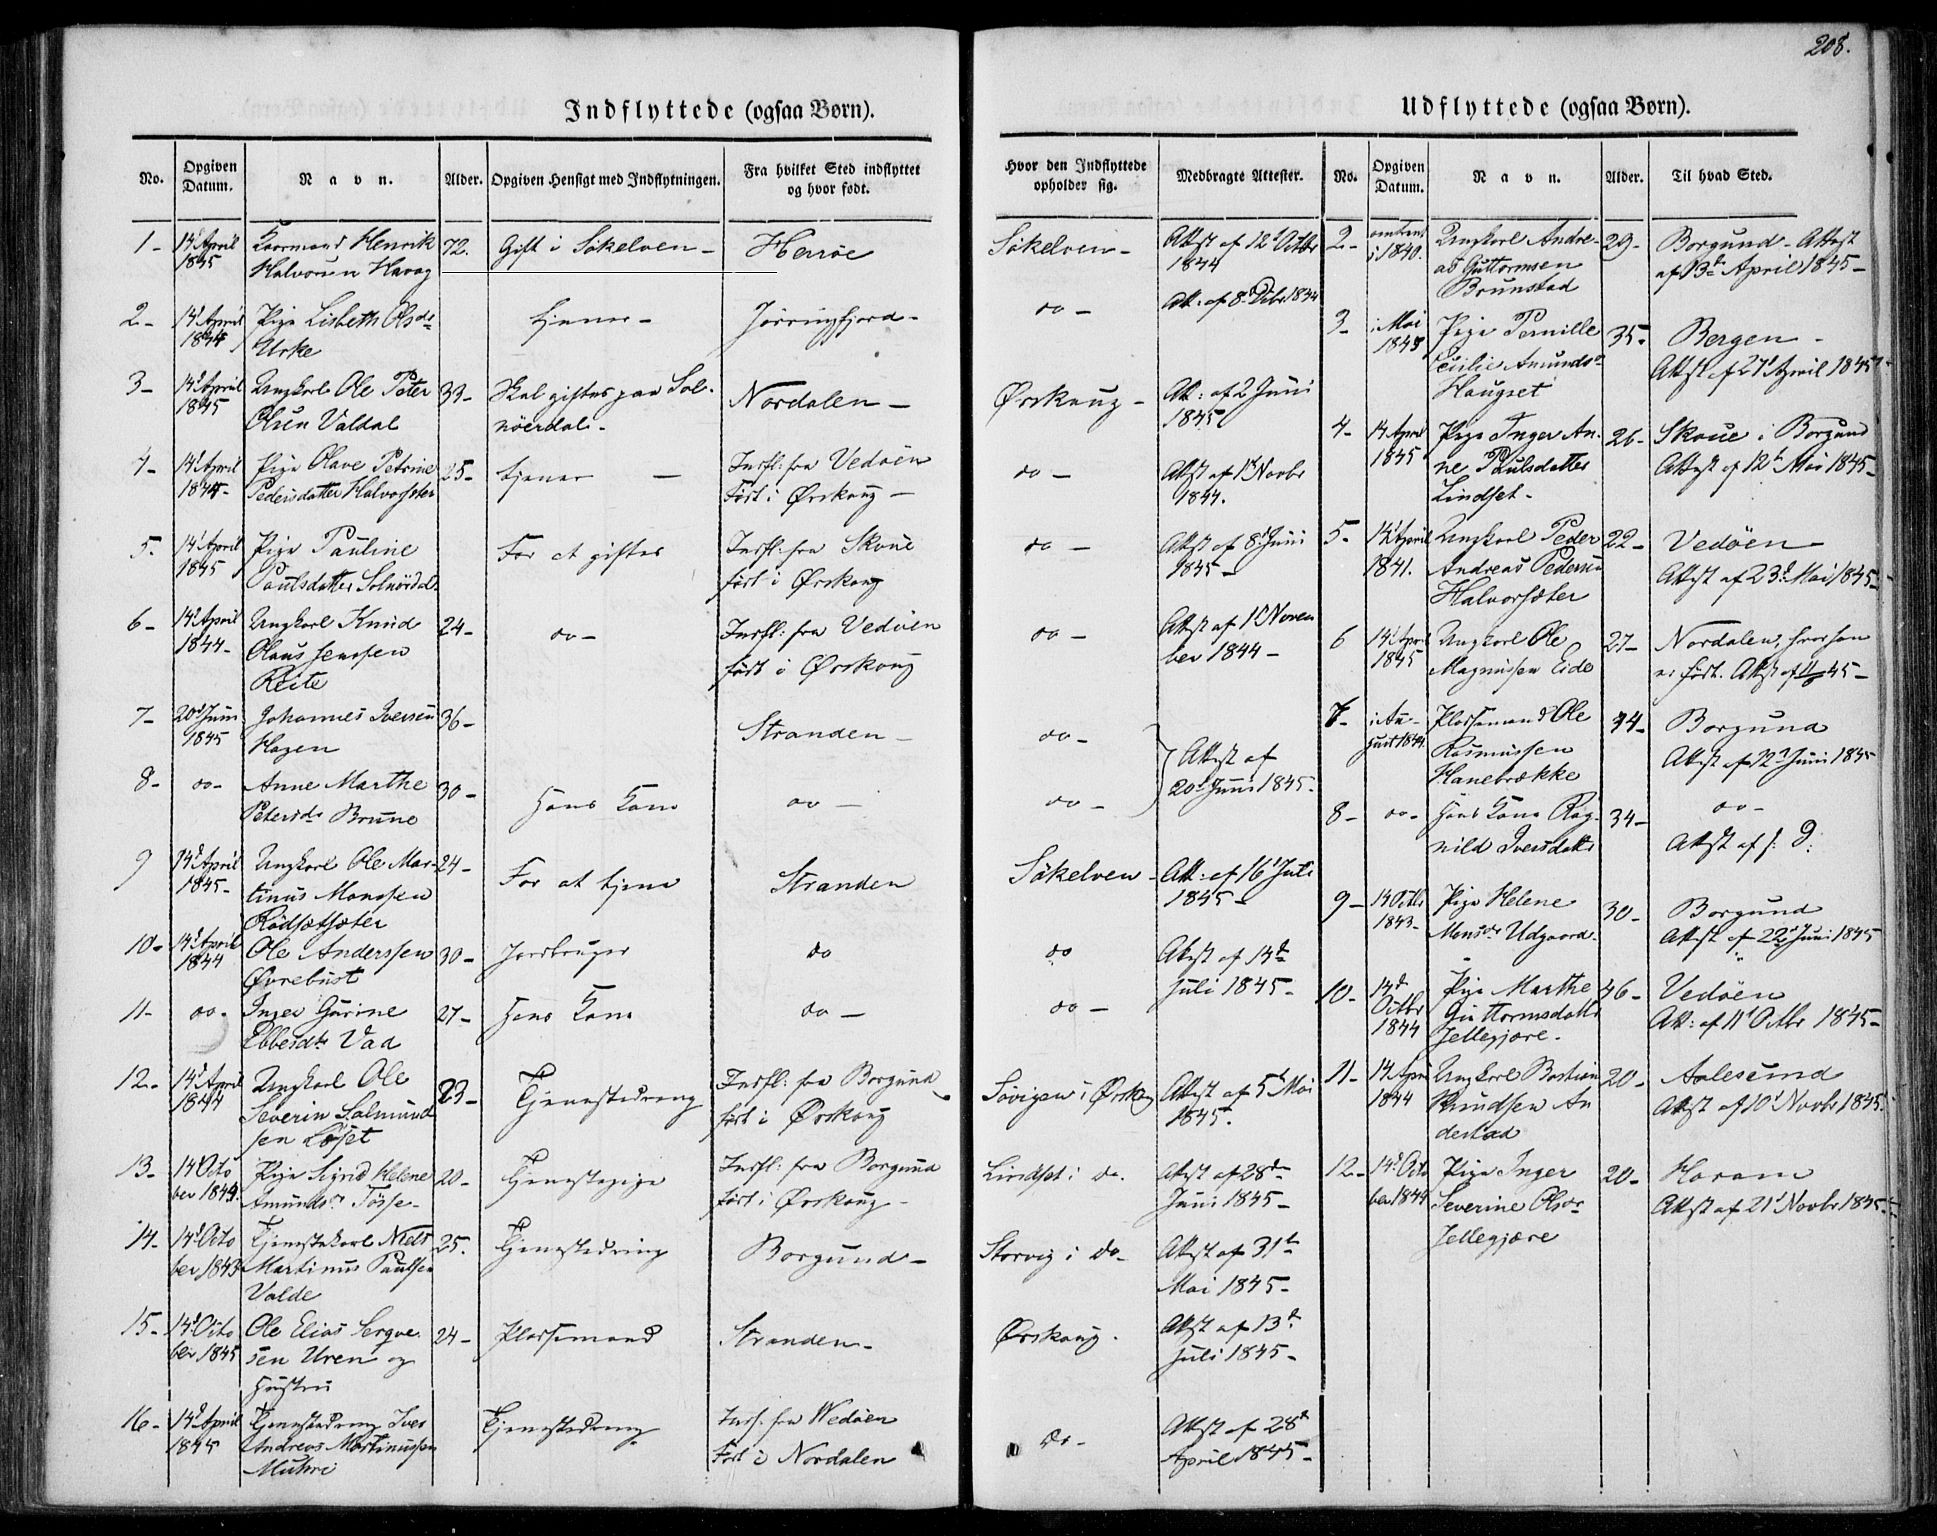 208.
Indflyttede (ogsaa Børn).
No. Opgiven Datum. Navn. Alder. Opgiven Hensigt med Indflytningen. Fra hvilket Sted indflyttet og hvor født. Hvor den Indflyttede opholder sig. Medbragte Attester.
1- 14d April 1845 Henrik Halvorsen Havag 72. Gift i Sökelven- Herröe Sökelven- Attest af 12t Octbr 1844
2- 14d April 1844 Pige Lisbeth Olsdr Urke tjener- Jörringfjord- do - Att: af 8d Dcbr 1844
3- 14d April 1845 Ungkarl Ole Peter Olsen Valdal 33- Skal giftes paa Solnöerdal- Nordalen- Ørskoug- Att: af 2 Juni 1845
4- 14d April 1844- Pige Olave Petrine Pedersdatter Halvorsæter 25- tjener - Indfl: fra Vedöen Født i Ørskoug- do - Attest af 1t Novbr 1844.
5. 14d April 1845 Pige Pauline Paulsdatter Solnördal. For at giftes Indfl: fra Skoue født i Ørskoug do - Attest af 8d Juni 1845-
6- 14d April 1844- Ungkarl Knud Olaus Jenssen Reite 24- do- Indfl: fra Vedöen født i Ørskoug do - Attest af 1t November 1844-
7- 20d Juni 1845 Johannes Iversen Hagen 36- Stranden- do- Attest af 20d Juni 1845.
8- do- Anne Marthe Petersdr Brune 30- Hans Kone do - do -
9 14d April 1845- Ungkarl Ole Martinus Monssen Rödsætsæter 24- For at tjene Stranden Sökelven- Att: af 16d Juli 1845-
10- 14d April 1844 Ole Anderssen Øvrebust 30- Jordbruger do do Attest af 14de Juli 1845-
11- do- Inger Gurine Ebbesdr Vad 27- Hans Kone do - do -
12- 14d April 1844 Ungkarl Ole Severin Salmundsen Löset 23- Tjenestedreng Indfl: fra Borgund født i Ørskoug Sövigen i Ørskoug Attest af 5t Mai 1845.
13- 14 October 1844. Pige Sigrid Helene Amundsdr Tösse- 20- Tjenestepige Indfl: fra Borgund født i Ørskoug- Lindset i do. Attest af 28de Juni 1845-
14- 14d October 1843 Tjenestekarl Niels Martinus Paulsen Valde 25. Tjenestedreng Borgund- Storvig i do- Attest af 31te Mai 1845-
15- 14d October 1845 Ole Elias Sergvesen Uren og Hustru 24- Pladsemand Stranden- Ørskoug. Attest af 13de Juli 1845-
16- 14d April 1845 Tjenestedreng Iver Andreas Martinussen Muhri Tjenestedreng Indf. fra Wedöen Født i Nordalen do- Attest af 28d April 1845-
Udflyttede (ogsaa Børn).
No. Opgiven Datum. Navn. Alder. Til hvad Sted.
2- omtent i 1840. Ungkarl Andreas Guttormsen Brunstad 29- Borgund- Attest af 13de April 1845-
3- i Mai 1845 Pige Pernille Cecilie Amundsdr Haugset 35- Bergen- Attest af 27d April 1845-
4- 14 April 1845 Pige Inger Anne Paulsdatter Lindset- 26- Skoue i Borgund Attest af 12t Mai 1845-
5- 14d April 1841. Ungkarl Peder Andreas Pedersen Halvorsæter 22- Vedöen Attest af 23d Mai 1845-
6 14d April 1845 Ungkarl Ole Magnussen Eide 27- Nordalen, hvor han er født. Attest af 45-
7- i August 1844. Pladsemand Ole Rasmussen Hanebrække 44- Borgund Attest af 12t Juni 1845
8- do- Hans Kone Ragnild Iversdatter 34- do- Attest af s: D:
9- 14 Octbr 1843- Pige Helene Monsdr Udgaard- 30- Borgund Attest af 22d Juni 1845
10- 14d Octbr 1844 Pige Marthe Guttormsdatter Jellegjære- 46- Vedöen Att: af 11t Octbr 1845-
11- 14 April 1844 Ungkarl Bastian Knudsen Andestad 20- Aalesund Attest af 10d Novbr 1845.
12- 14d October 1844 Pige Inger Severine Olsdr Jellegjære 20- Haram Attest af 21d Novbr 1845-